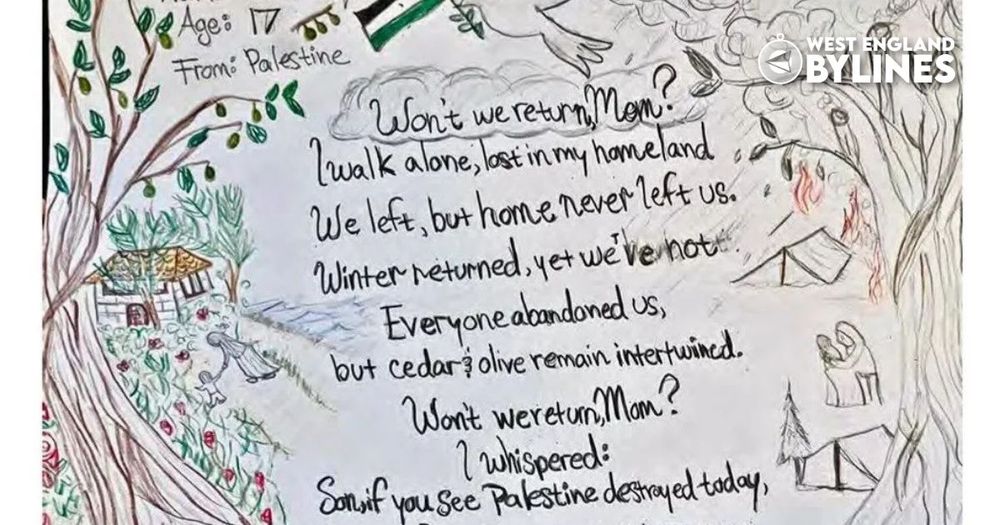 Age: 17
From: Palestine
WEST ENGLAND
BYLINES
Won't we return, Mom?
I walk alone, lost in my homeland
We left, but home never left us.
Winter returned, yet we've not
Everyone abandoned us,
but cedar & olive remain intertwined.
Won't we return, Mom?
I whispered:
Son, if you see Palestine destroyed today,